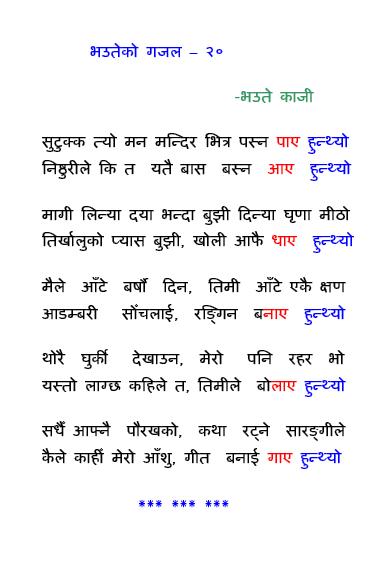 भउतेको गजल – २०
-भउते काजी
सुटुक्क त्यो मन मन्दिर भित्र पस्न पाए हुन्थ्यो
निष्ठुरीले कि त यतै बास बस्न आए हुन्थ्यो
मागी लिन्या दया भन्दा बुझी दिन्या घृणा मीठो
तिर्खालुको प्यास बुझी, खोली आफै धाए हुन्थ्यो
मैले आँटे बर्षौ दिन, तिमी आँटे एकै क्षण
आडम्बरी सोँचलाई, रङ्गिन बनाए हुन्थ्यो
थोरै घुर्की देखाउन, मेरो पनि रहर भो
यस्तो लाग्छ कहिले त, तिमीले बोलाए हुन्थ्यो
सधैँ आफ्नै पौरखको, कथा रट्ने सारङ्गीले
कैले काहीँ मेरो आँशु, गीत बनाई गाए हुन्थ्यो
*** *** ***